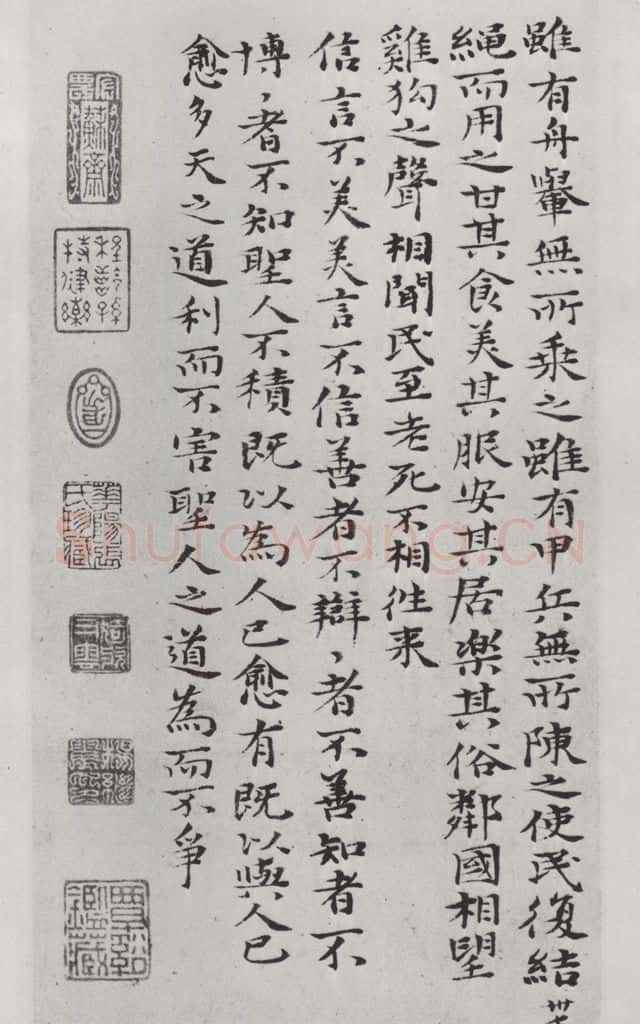 雖有舟轝無所乗之雖有甲兵無所陳之使民復結
繩而用之甘其食美其服安其居樂其俗鄰國相望
雞狗之聲相聞民至老死不相往来
信言不美美言不信善者不辯〻者不善知者不
博〻者不知聖人不積既以為人已愈有既以與人已
愈多天之道利而不害聖人之道為而不爭
Shufawang.CN